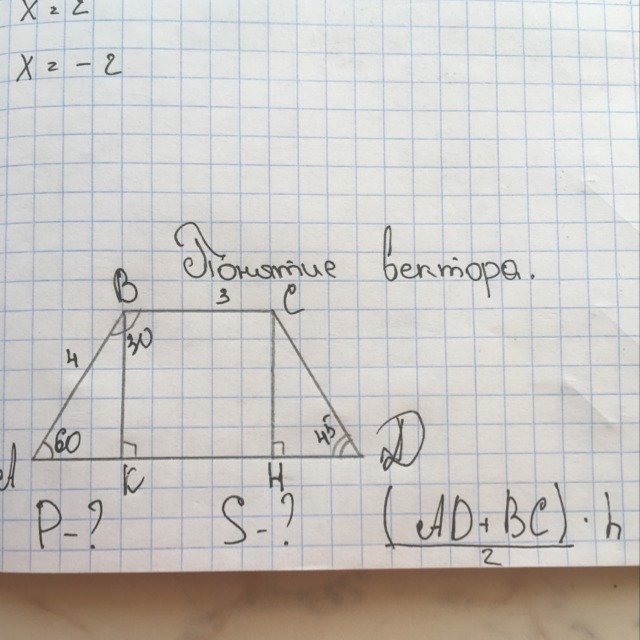 x = 2
x = - 2
Понятие вектора.
B 3 C
4 30
A 60 45 D
K H
P-? S-? (AD+BC) · h
2